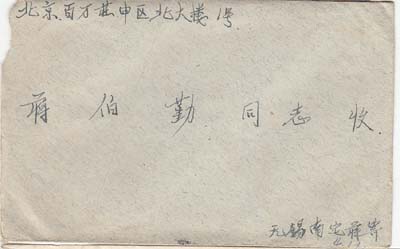 北京百万庄申区北大楼1号
蒋伯勤同志收
无锡南 蒋